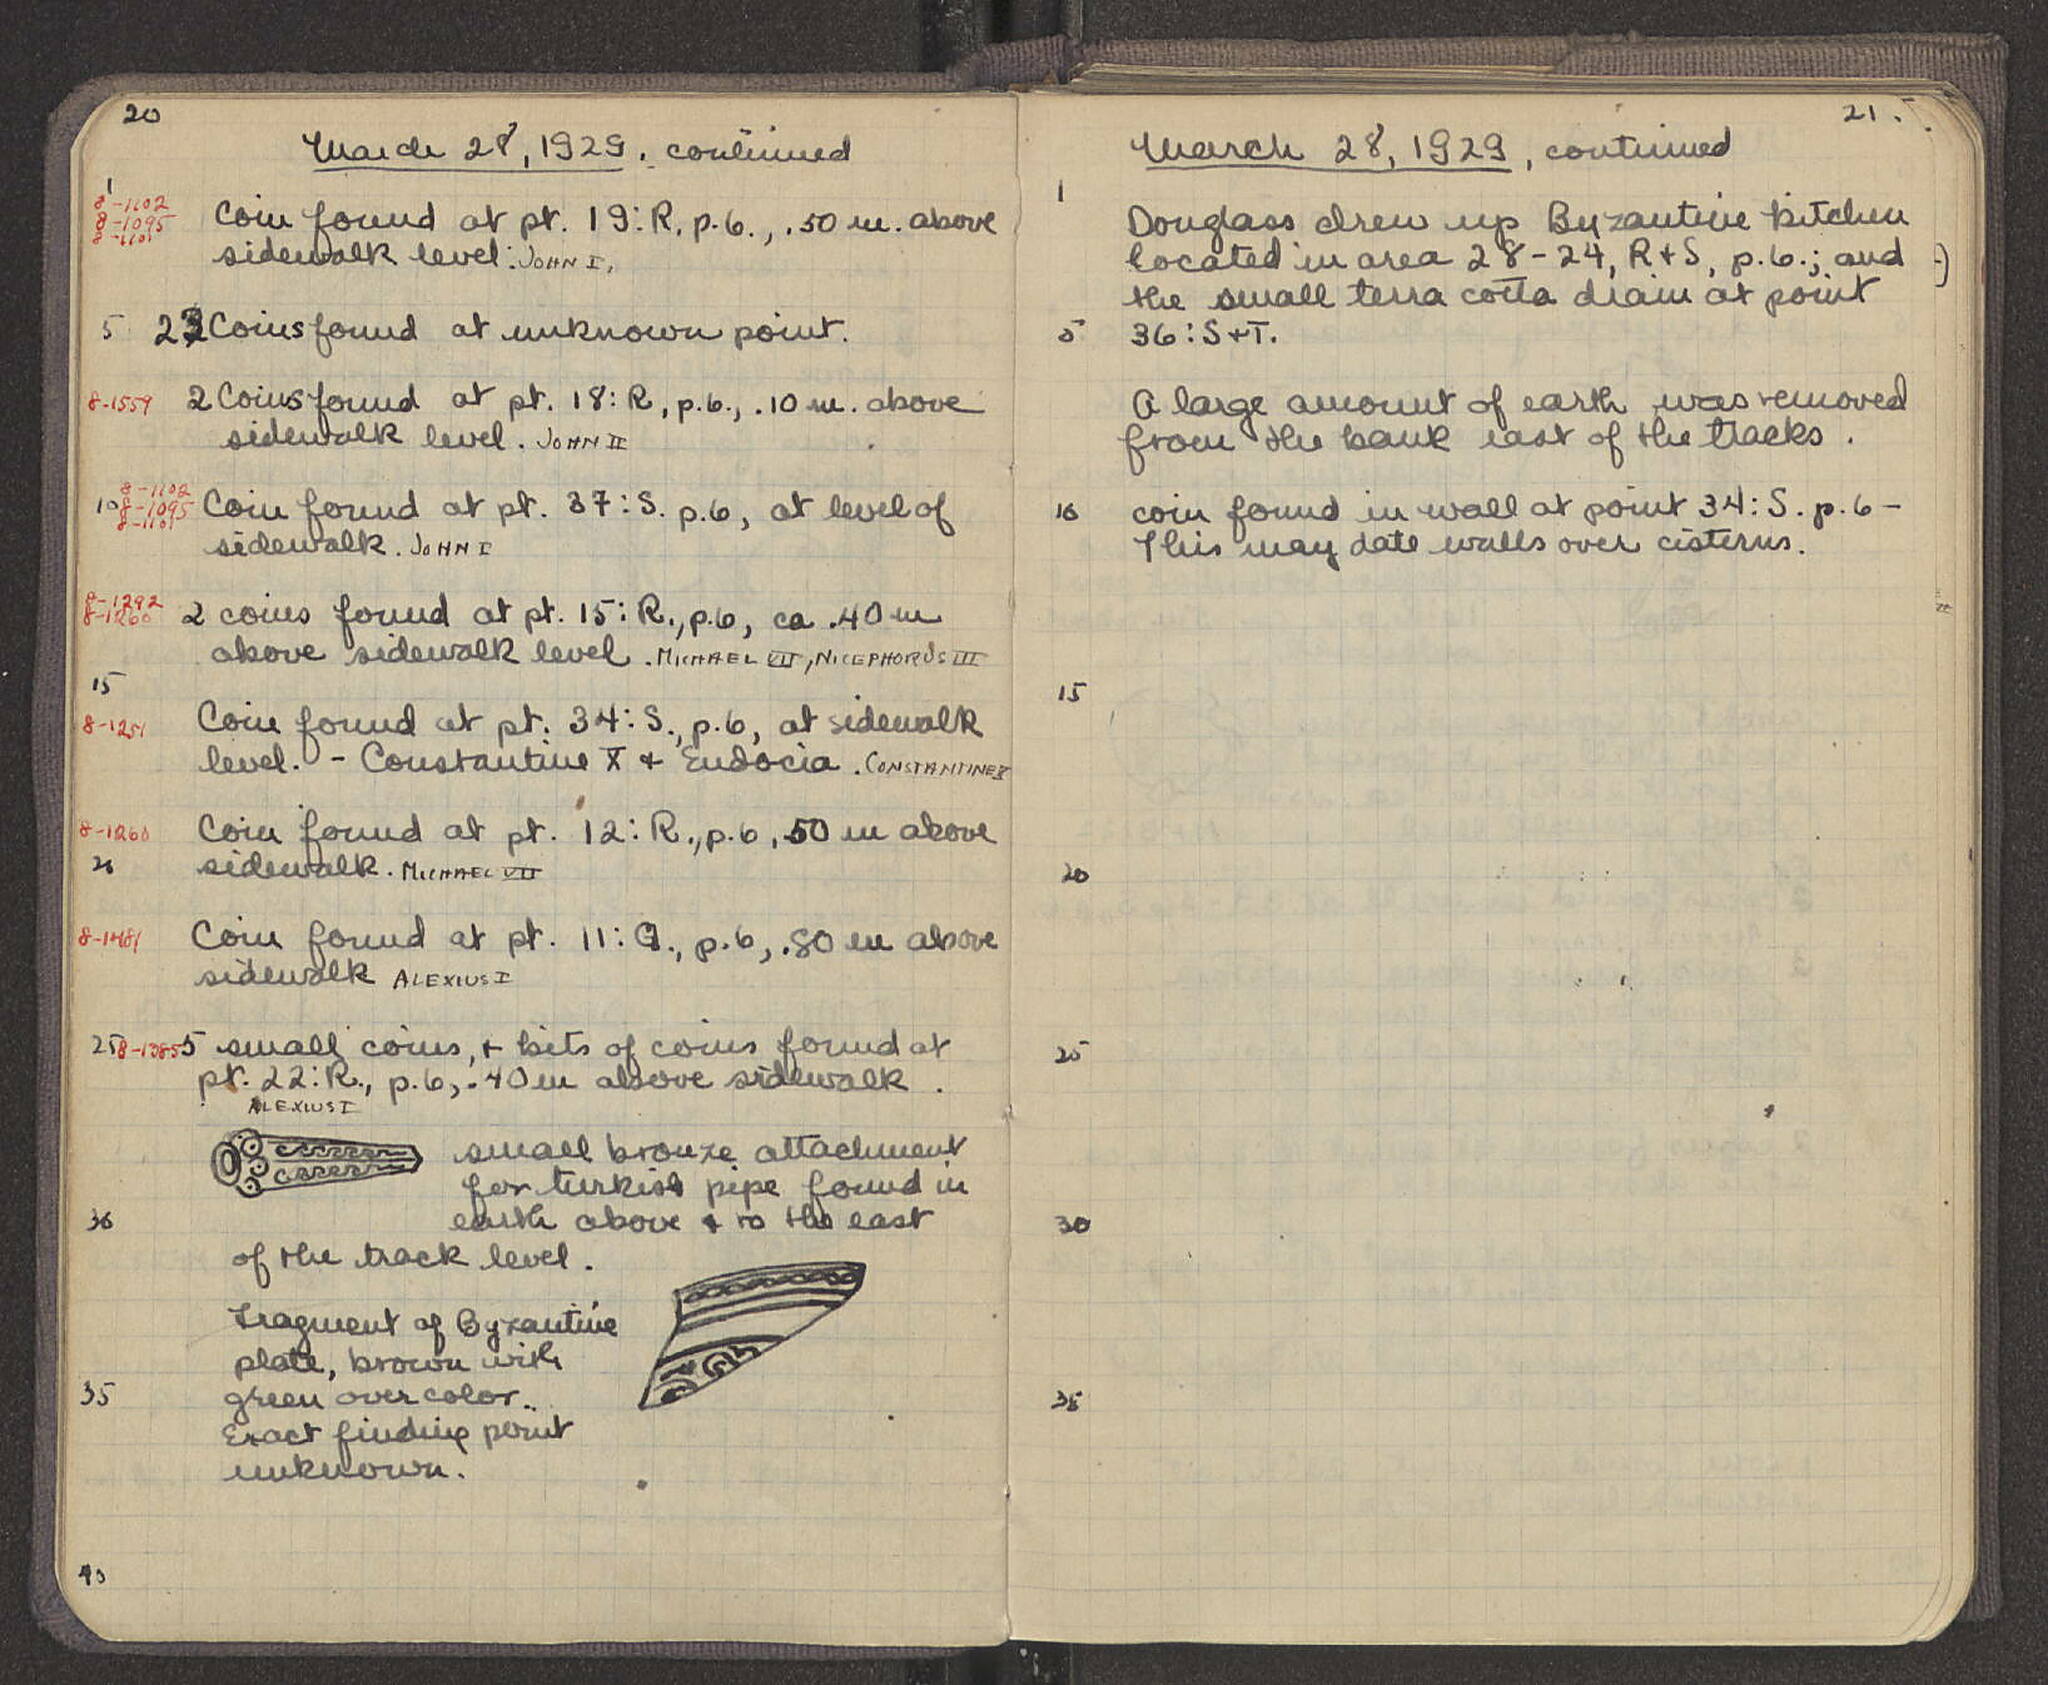 20
March 28, 1929. continued
1
8-1102
8-1095
8-1101
Coin found at pt. 19:R, p.6., .50 m. above
sidewalk level. JOHN I.
5 Coins found at unknown point.
8-1559 2 Coins found at pt. 18:R, p.6., .10 m. above
sidewalk level. JOHN II
8-1102
10 8-1095
8-1101
Coin found at pt. 37:S. p.6, at level of
sidewalk. JOHN I
8-1292
8-1260
2 coins found at pt. 15:R., p.6, ca .40 m
above sidewalk level. MICHAEL VII, NICEPHORUS III
15
8-1251 Coin found at pt. 34:S., p.6, at sidewalk
level. - Constantine X + Eudocia. CONSTANTINE X
8-1260 Coin found at pt. 12:R., p.6, .50 m above
20 sidewalk. MICHAEL VII
8-1481 Coin found at pt. 11:Q., p.6, .80 m above
sidewalk ALEXIUS I
25 8-1385 5 small coins, + bits of coins found at
pt. 22:R., p.6, .40 m above sidewalk.
ALEXIUS I
small bronze attachment
for turkish pipe found in
30 earth above + to the east
of the track level.
Fragment of Byzantine
plate, brown with
35 green over color.
Exact finding point
unknown.
40
21.
March 28, 1929, continued
1
Douglass drew up Byzantine kitchen
located in area 28-24, R+S, p.6.; and
the small terra cotta drain at point
5 36:S+T.
A large amount of earth was removed
from the bank east of the tracks.
10 coin found in wall at point 34:S. p.6 -
This may date walls over cisterns.
15
20
25
30
35